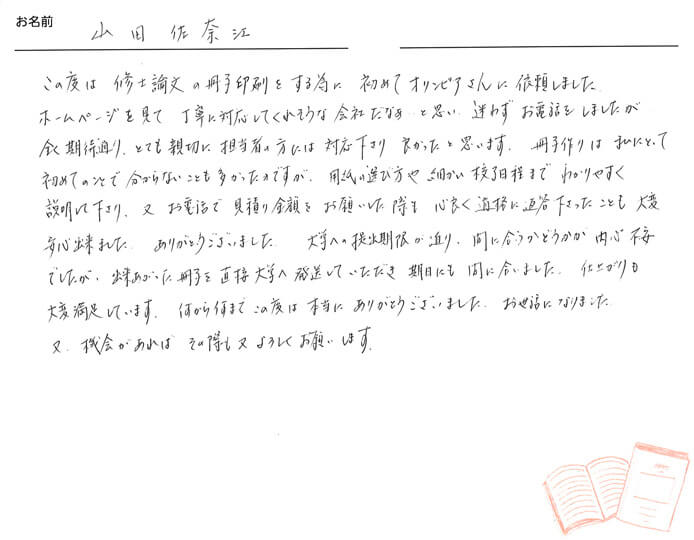 お名前
山田 佐奈江
この度は 修士論文の冊子印刷をする為に 初めて オリンピアさんに依頼しました。
ホームページを見て 丁寧に対応してくれそうな会社だなぁ と思い 迷わず お電話をしましたが
全く期待通り、とても親切に担当者の方には 対応下さり 良かったと思います。 冊子作りは 私にとって
初めてのことで 分からないことも多かったのですが、 用紙の選び方や 細かい 校了日程まで わかりやすく
説明して下さり、又 お電話で 見積り金額を お願いした際も 心良く 直接に返答下さったことも 大変
安心出来ました。 ありがとうございました。 大学への提出期限が迫り、間に合うかどうかが 内心 不安
でしたが、出来あがった冊子を 直接 大学へ 発送していただき 期日にも 間に合いました。 仕上がりも
大変満足しています。 何から何まで この度は 本当に ありがとうございました。 お世話になりました。
又、機会があれば その際も又 よろしくお願いします。